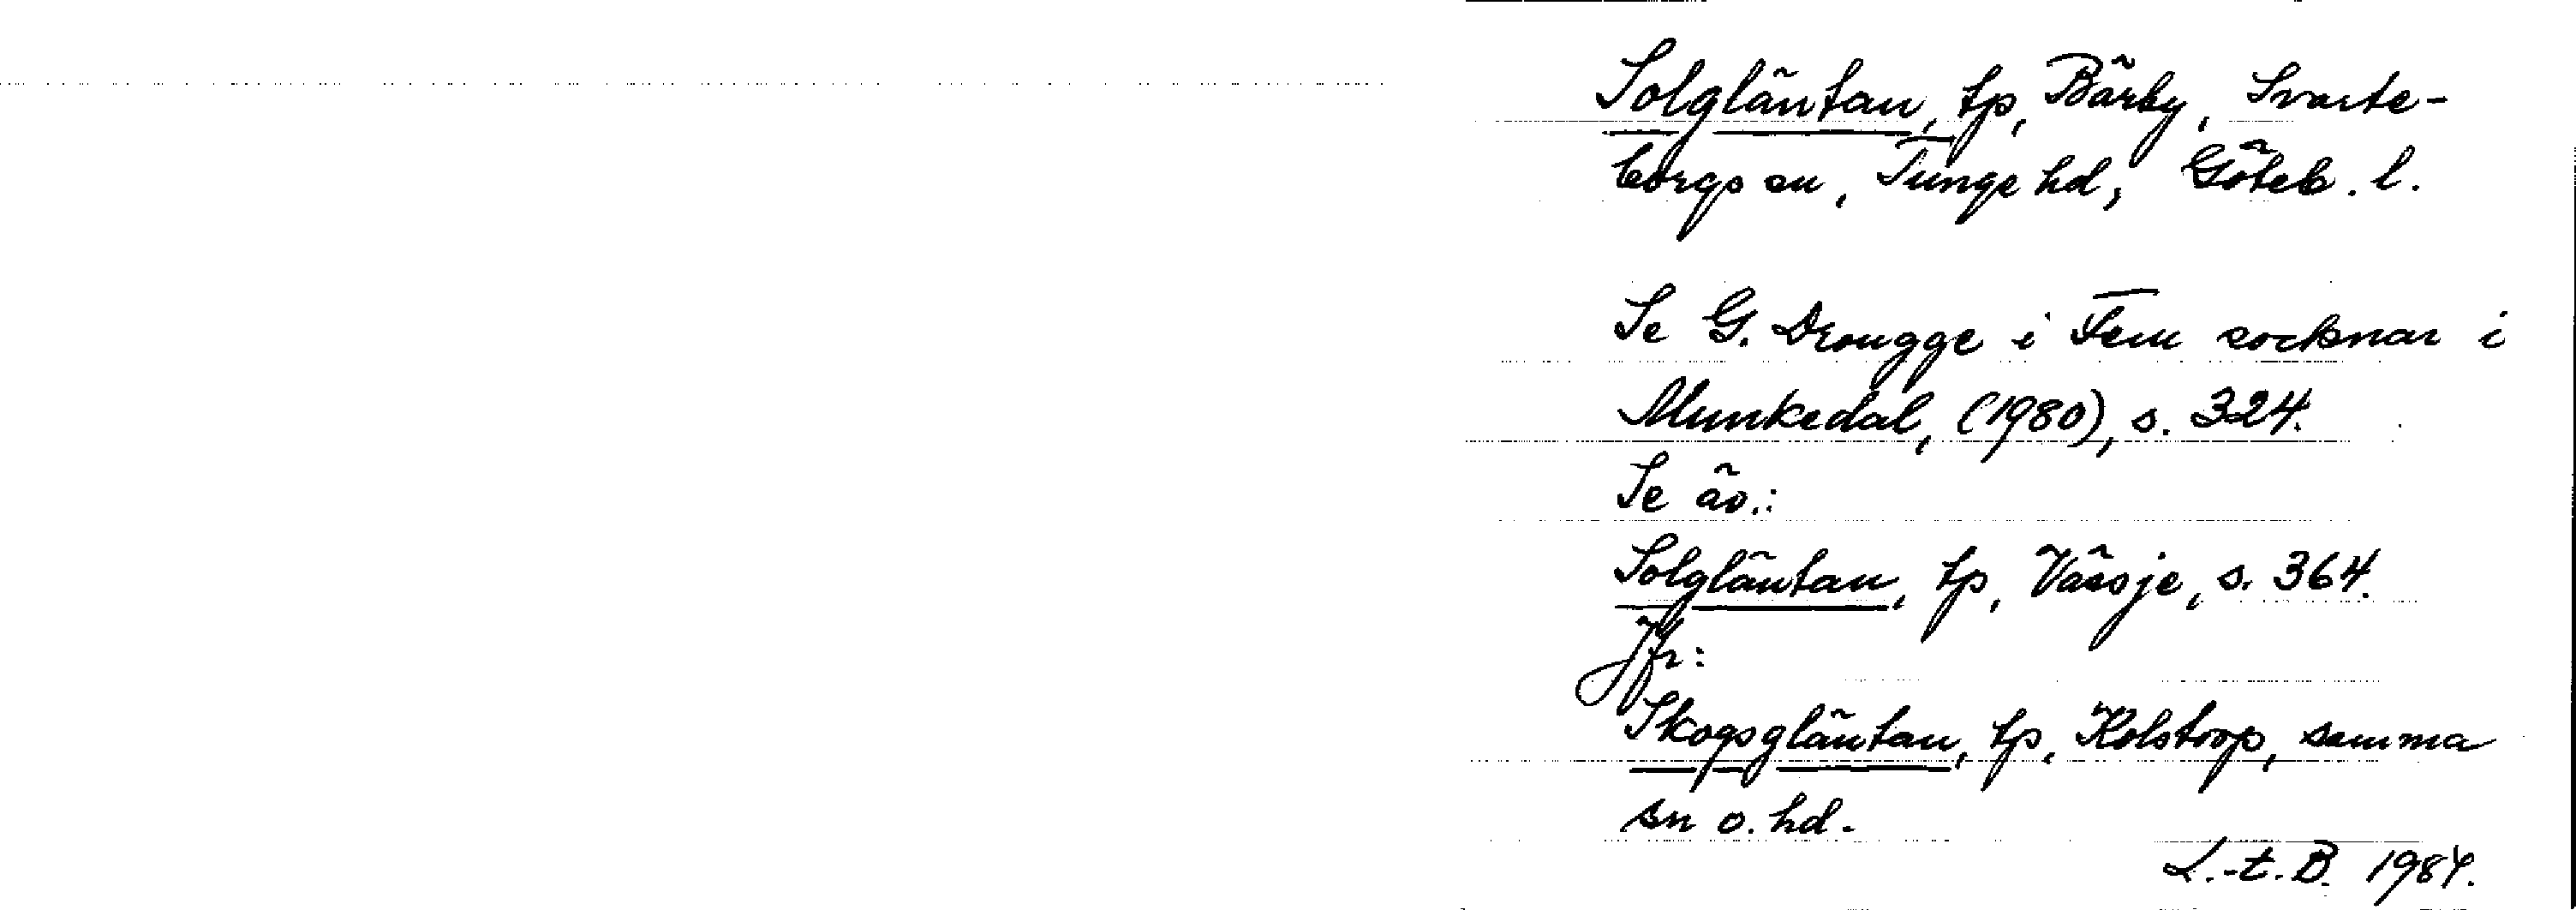 Solgläntan, tp, Bärby, Svarte-
borgs sn, Tunge hd, Göteb. l.
Se G. Drougge i Fem socknar i
Munkedal, (1980), s. 324.
Se äv.:
Solgläntan, tp, Vässje, s. 364.
Jfr:
Skogsgläntan, tp, Kolstorp, samma
sn o. hd.
L.-t. B. 1984.